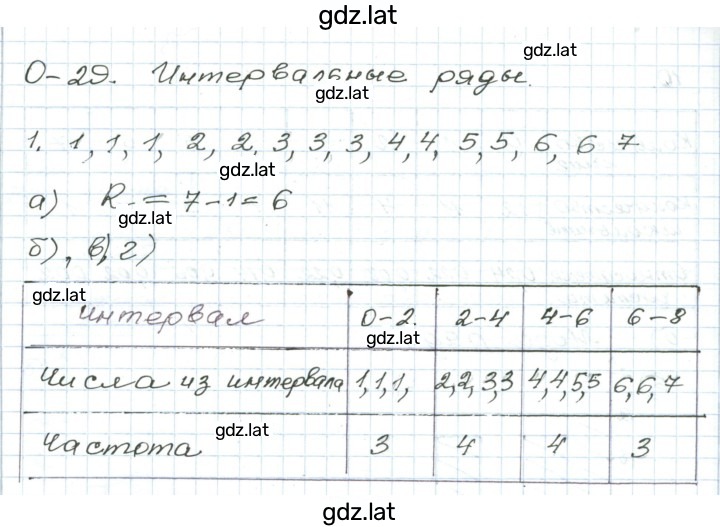 gdz.lat
gdz.lat
О-29. Интервальные ряды.
gdz.lat
1. 1, 1, 1, 2, 2, 3, 3, 3, 4, 4, 5, 5, 6, 6 7
gdz.lat
а) R = 7-1 = 6
gdz.lat
б), в), г)
gdz.lat
интервал 0-2. 2-4 4-6 6-8
gdz.lat
Числа из интервала 1,1,1, 2,2,3,3 4,4,5,5 6,6,7
gdz.lat
Частота 3 4 4 3
gdz.lat